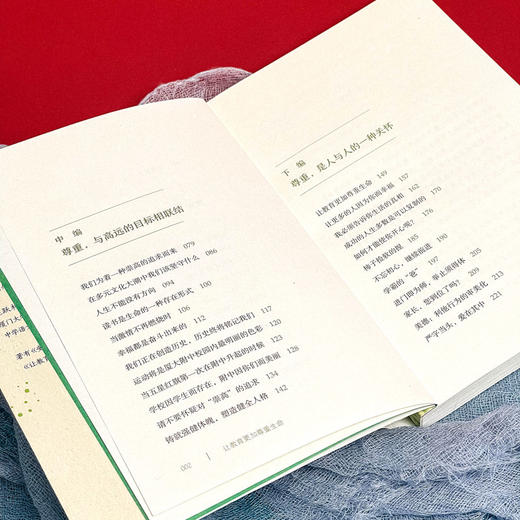 中 编
尊重，与高远的目标相联结
我们为着一种崇高的追求而来 079
在多元文化大潮中我们该坚守什么 086
人生不能没有方向 094
读书是生命的一种存在形式 100
当激情不再燃烧时 106
幸福都是奋斗出来的 110
我们正在创造历史，历史终将铭记我们 113
运动将是厦大附中校园内最明亮的色彩 120
当五星红旗第一次在附中升起的时候 123
学校因学生而存在，附中因你们而美丽 128
请不要怀疑对“崇高”的追求 134
铸就强健体魄，塑造健全人格 142
002 让教育更加尊重生命
下 编
尊重，是人与人的一种关怀
让教育更加尊重生命 149
让更多的人因为你而幸福 157
我必须告诉你生活的真相 162
成功的人生多数是可以复制的 170
如何才能使你开心呢？ 176
柿子捡软的捏 185
不忘初心，继续前进 190
学爸的“爸” 197
进门即为师，举止须师体 205
家长，您到位了吗？ 209
美德，利他行为的审美化 213
严字当头，爱在其中 221